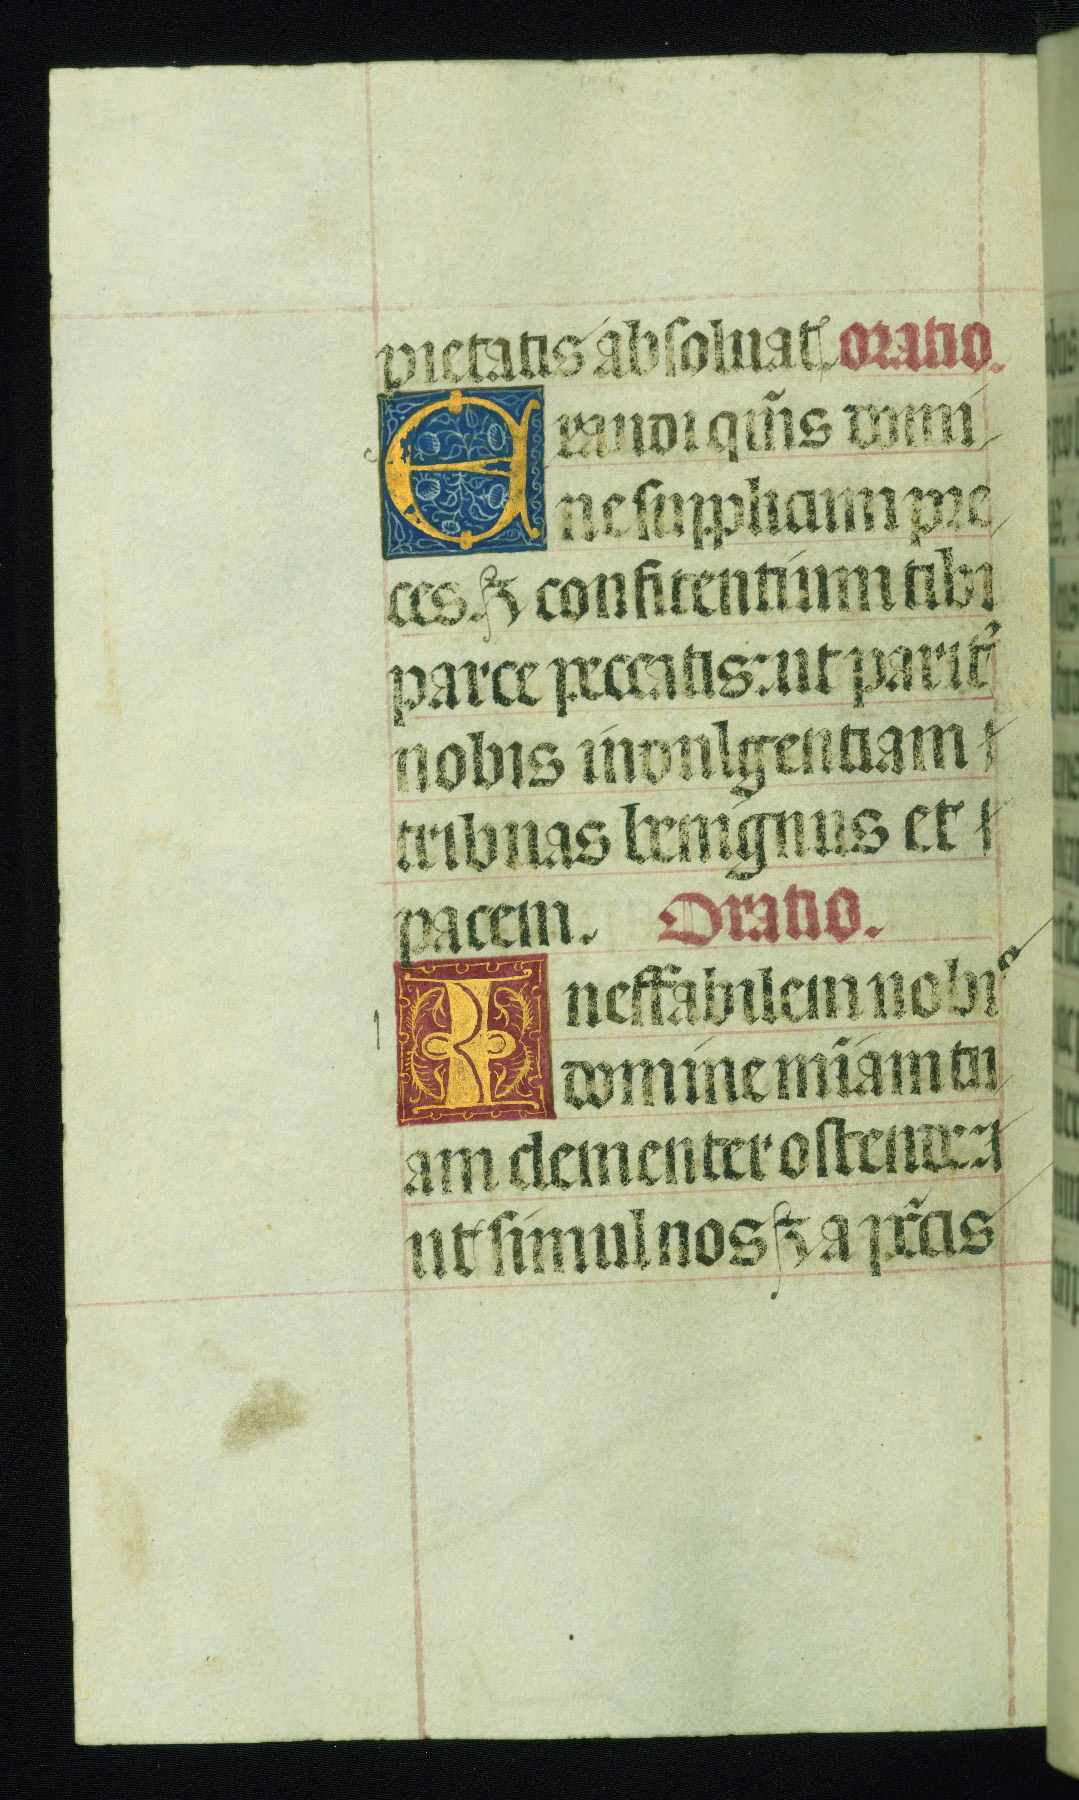 pietatis absoluat. oratio.
Exaudi qm̃s domi
ne supplicum pre
ces. ꝫ confitentium tibi
parce peccatis: ut parit᷑
nobis indulgentiam
tribuas benignus et
pacem. Oratio.
Ineffabilem nobis
domine mīam tu
am clementer ostende:
ut simul nos ꝫ a pc̃cis